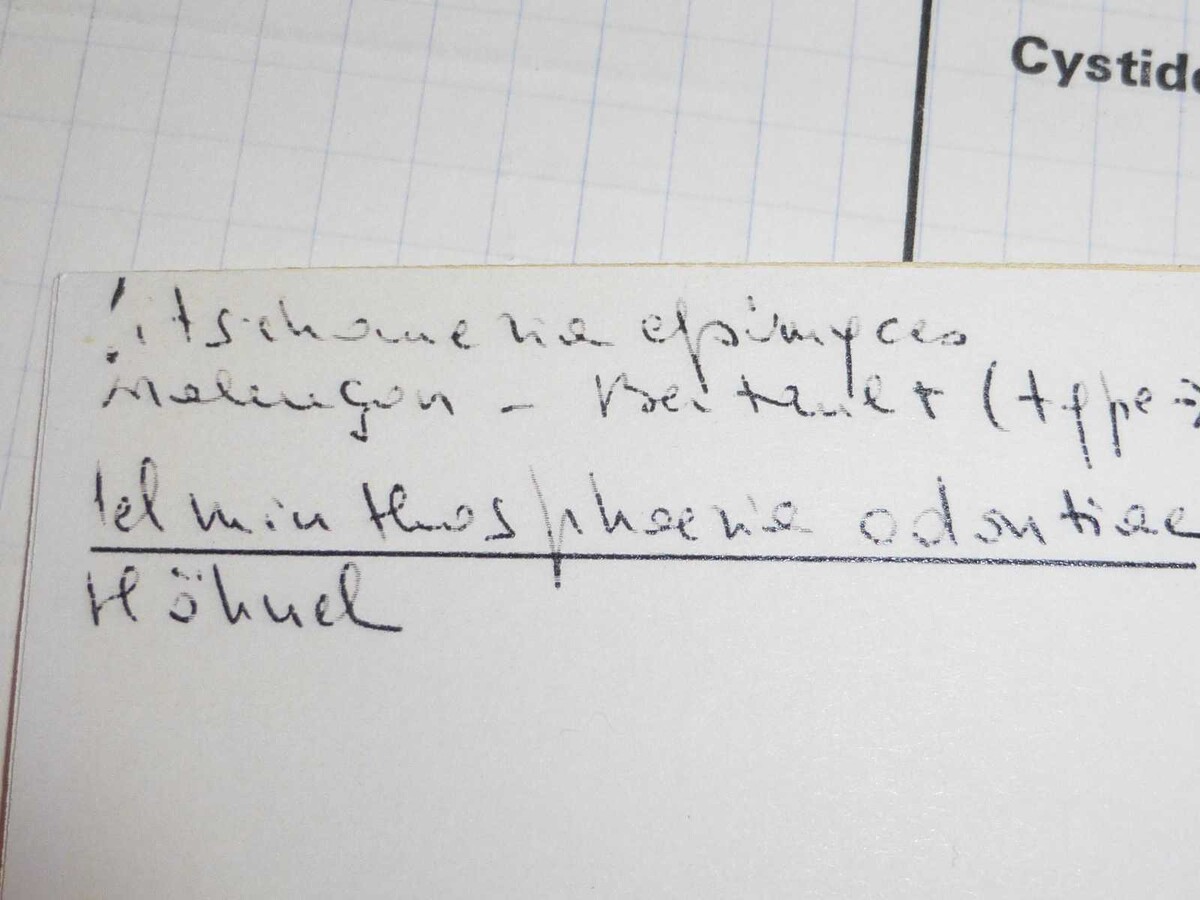 Cystide
Nitschkauezia epimyces
Malençon - Bertault (type)
Helminthosphaeria odontiae
Höhnel